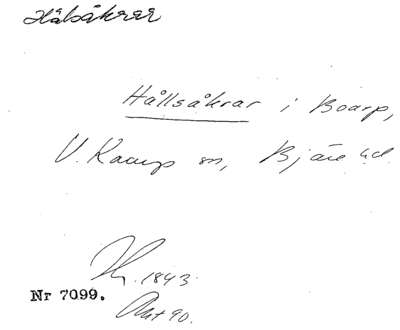 Hålsåkrar
Hållsåkrar i Boarp,
V. Karup sn, Bjäre hd.
1843.
Nr 7099.
Akt 90.